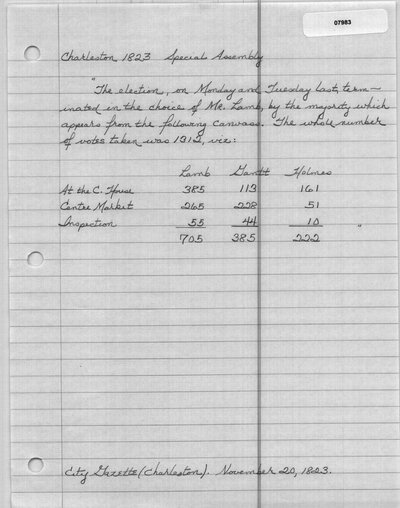 07983
Charleston 1823 Special Assembly
"The election, on Monday and Tuesday last, term-
inated in the choice of Mr. Lamb, by the majority which
appears from the following canvass. The whole number
of votes taken was 1312, viz:
Lamb Gantt Holmes
At the C. House 385 113 161
Centre Market 265 228 51
Inspection 55 44 10 "
705 385 222
City Gazette (Charleston). November 20, 1823.